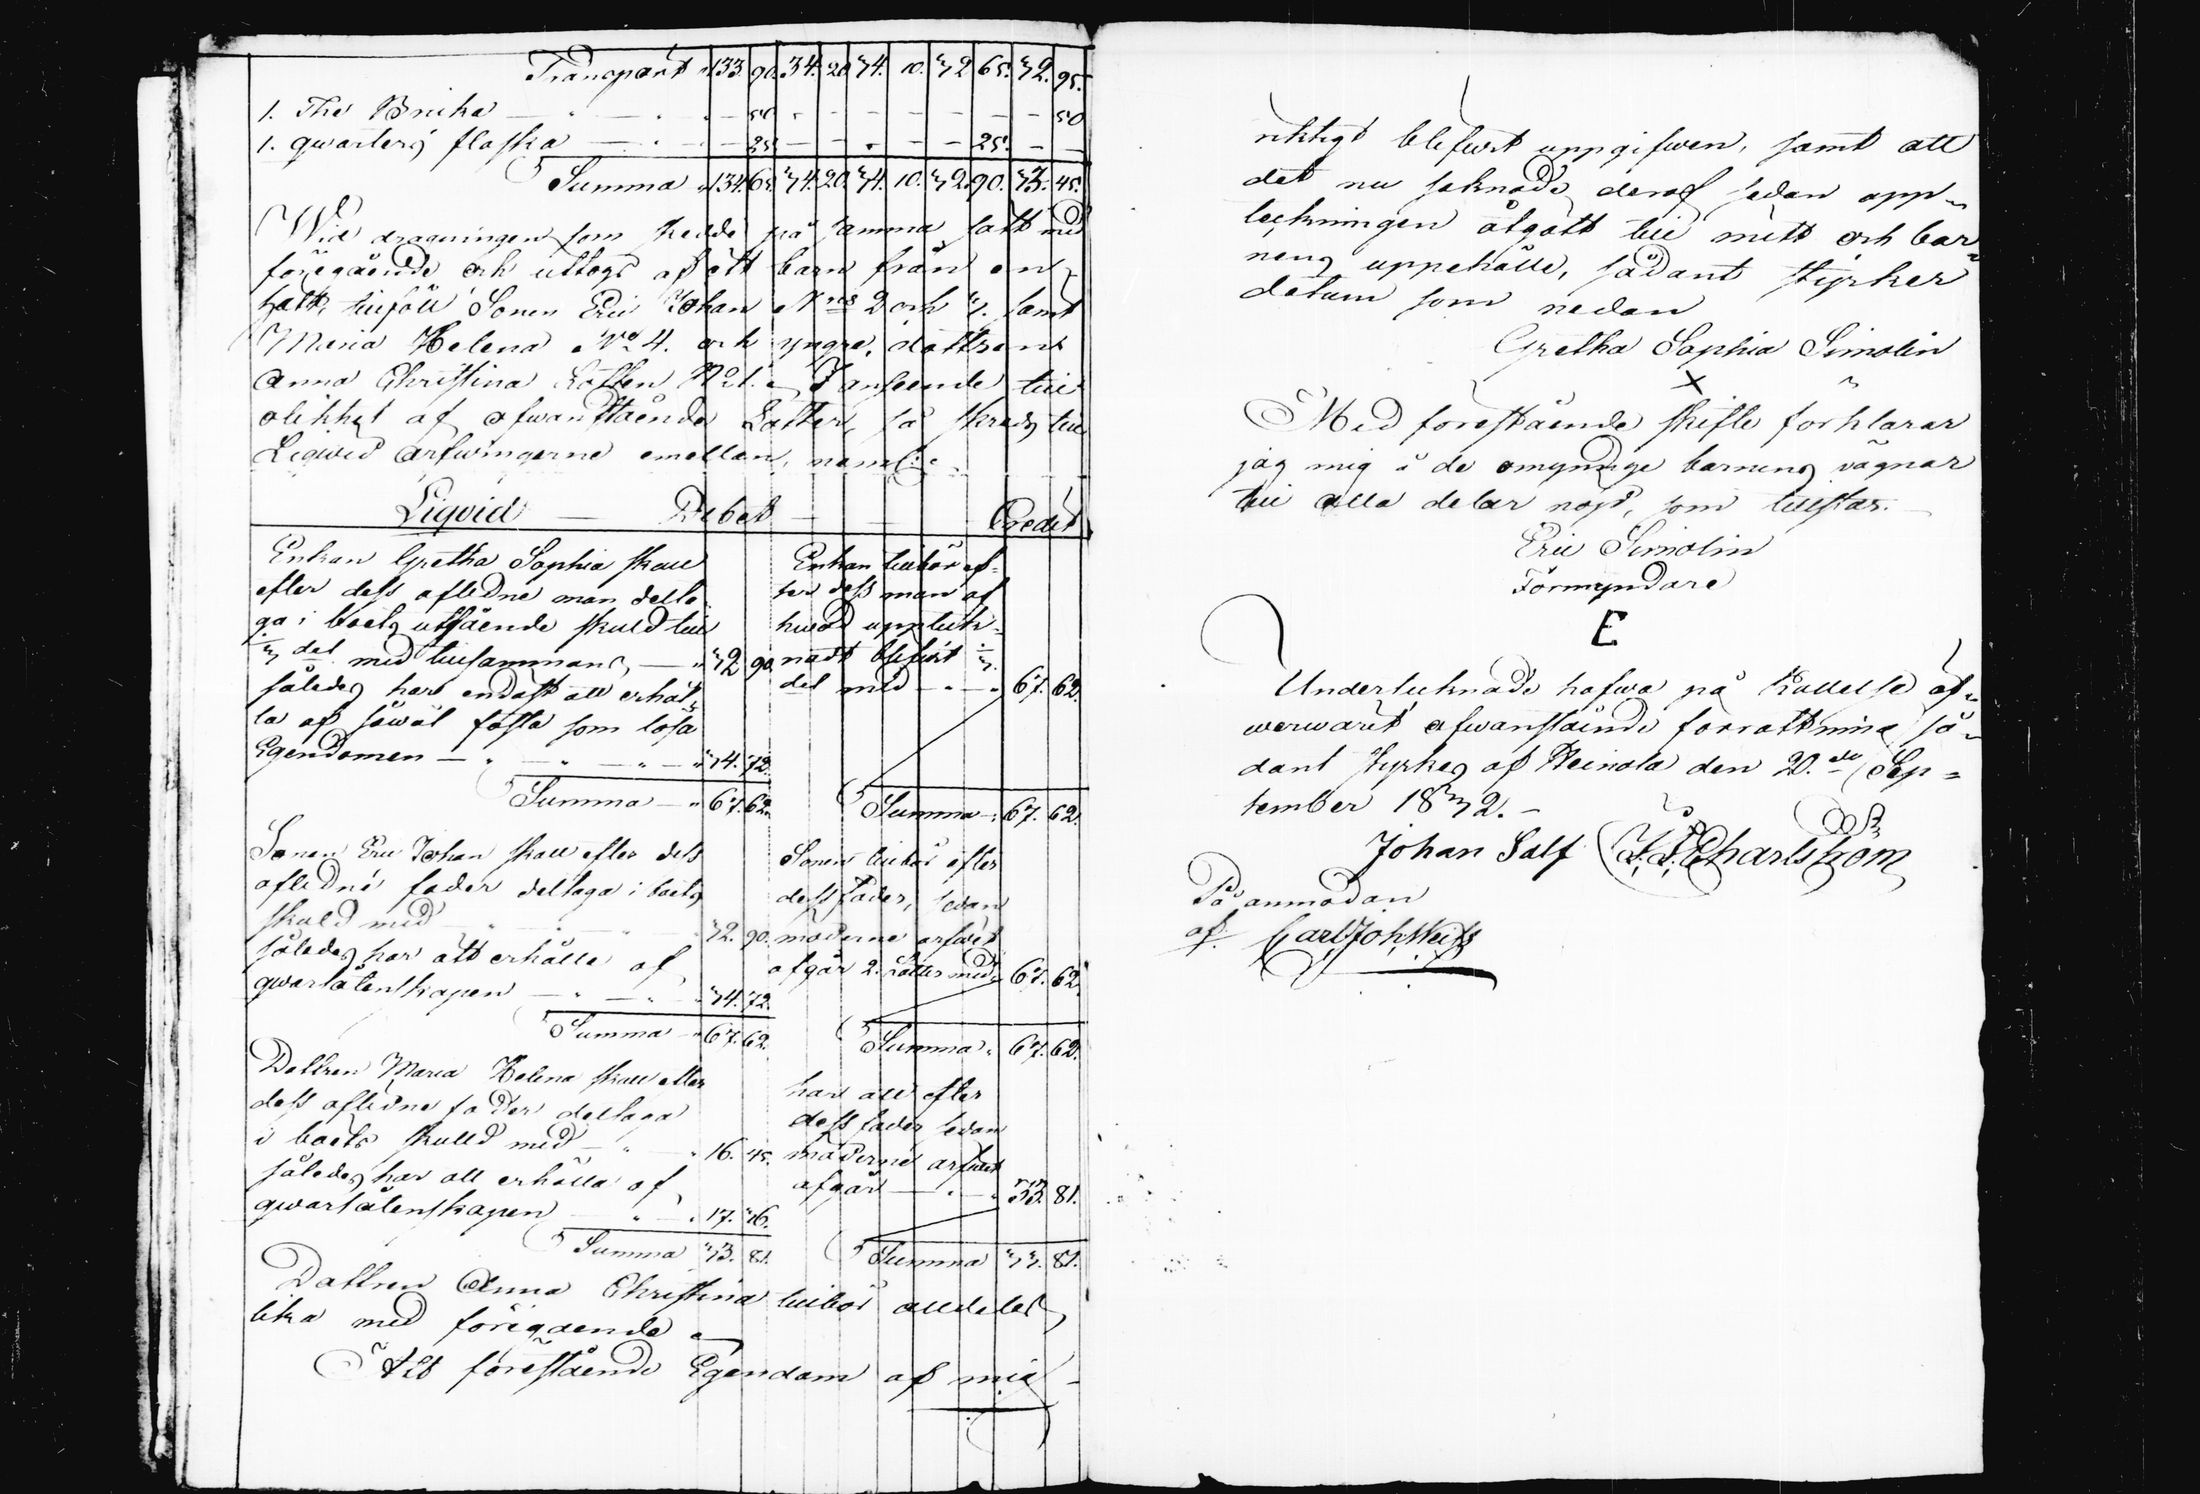 Transport 133. 90. 34. 20. 34. 10. 32 65. 32. 95.
1. The Bricka — — 50 - - - - - - - 50
1. qwarters flaska — — 25 - - - - - 25. - -
Summa 134. 65. 34. 20. 34. 10. 32. 90. 33. 45.
Wid dragningen som skedde på samma satt med
föregående och uttogs af ett barn från en
hatt, tillföll Sonen Eric Johan Nris 2 och 3. samt
Maria Helena No 4. och yngre dottren
Anna Christina Lotten No 1. I anseende till
olikhet af ofwanstående Lotter, så skreds till
Liqwid arfwingarne emellan, neml:
Liqvid — Debet — — Credit
Enkan Gretha Sophia skall
efter dess aflidne man delta-
ga i boets utstående skuld till
1/3 del med tillsammans — 32 90
således har endast att erhål-
la af såwäl fasta som lösa
Egendomen — — — 34. 72.
Summa — 67. 62.
Enkan tillhör ef-
ter dess man af
hwad uppteck-
nadt blifwit 1/3
del med — 67. 62.
Summa — 67. 62.
Sonen Eric Johan skall efter dess
aflidne fader deltaga i boets
skuld med 32. 90.
således har att erhålla af
qwarlåtenskapen — — 34. 72.
Summa — 67. 62.
Sonen tillhör efter
dess Fader, sedan
moderne arfwet
afgår 2. Lotter med 67. 62.
Summa 67. 62.
Dottren Maria Helena skall efter
dess aflidne fader deltaga
i boets skuld med — 16. 45.
således har att erhålla af
qwarlåtenskapen — 17. 36.
Summa 33. 81.
har att efter
dess fader sedan
moderne arfwet
afgår — 33. 81.
Summa 33. 81.
Dottren Anna Christina tillhör alldeles
lika med föregående
At förestående Egendom af mig
riktigt blifwit uppgifwen, samt att
det nu saknade deraf sedan upp-
teckningen åtgått till mitt och bar-
nens uppehälle, sådant styrker
datum som nedan
Gretha Sophia Simolin
X
Med förestående skifte förklarar
jag mig å de omyndige barnens vägnar
till alla delar nöjd, som tillstår.
Eric Simolin
Förmyndare
E
Undertecknade hafwa på kallelse öf-
werwarit ofwanstående förrättning så-
dant styrkes af Heinola den 20.de Sep-
tember 1832.
Johan Salf J. J. Charlström
På anmodan
af. Carl Joh